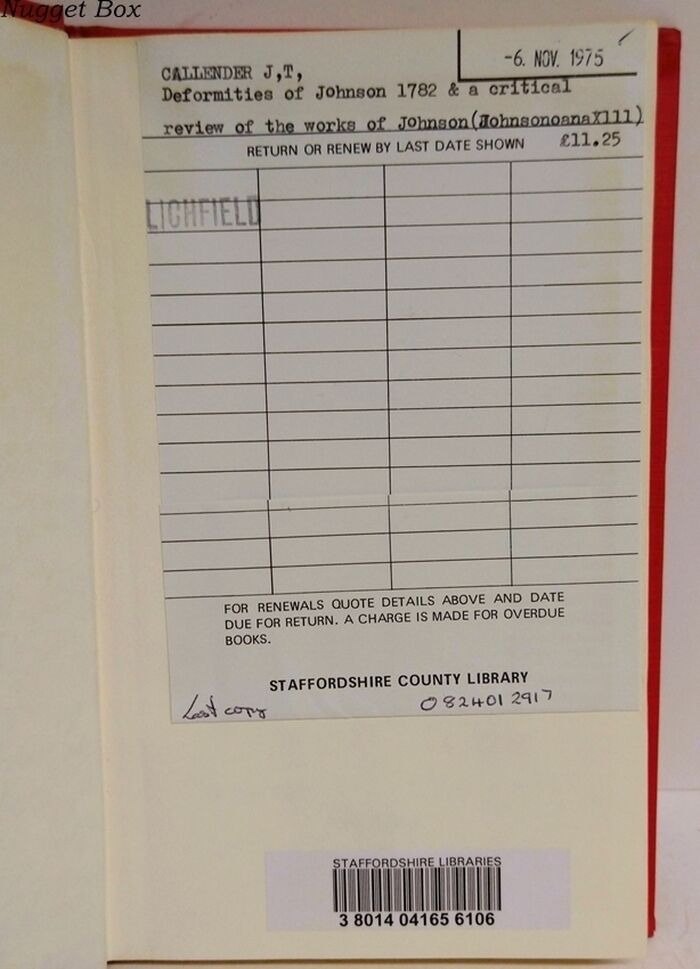 Nugget Box
-6. NOV. 1975
CALLENDER J,T,
Deformities of Johnson 1782 & a critical
review of the works of Johnson(JohnsonoanaXlll)
RETURN OR RENEW BY LAST DATE SHOWN £11.25
LICHFIELD
FOR RENEWALS QUOTE DETAILS ABOVE AND DATE
DUE FOR RETURN. A CHARGE IS MADE FOR OVERDUE
BOOKS.
STAFFORDSHIRE COUNTY LIBRARY
Last copy 0824012917
STAFFORDSHIRE LIBRARIES
3 8014 04165 6106